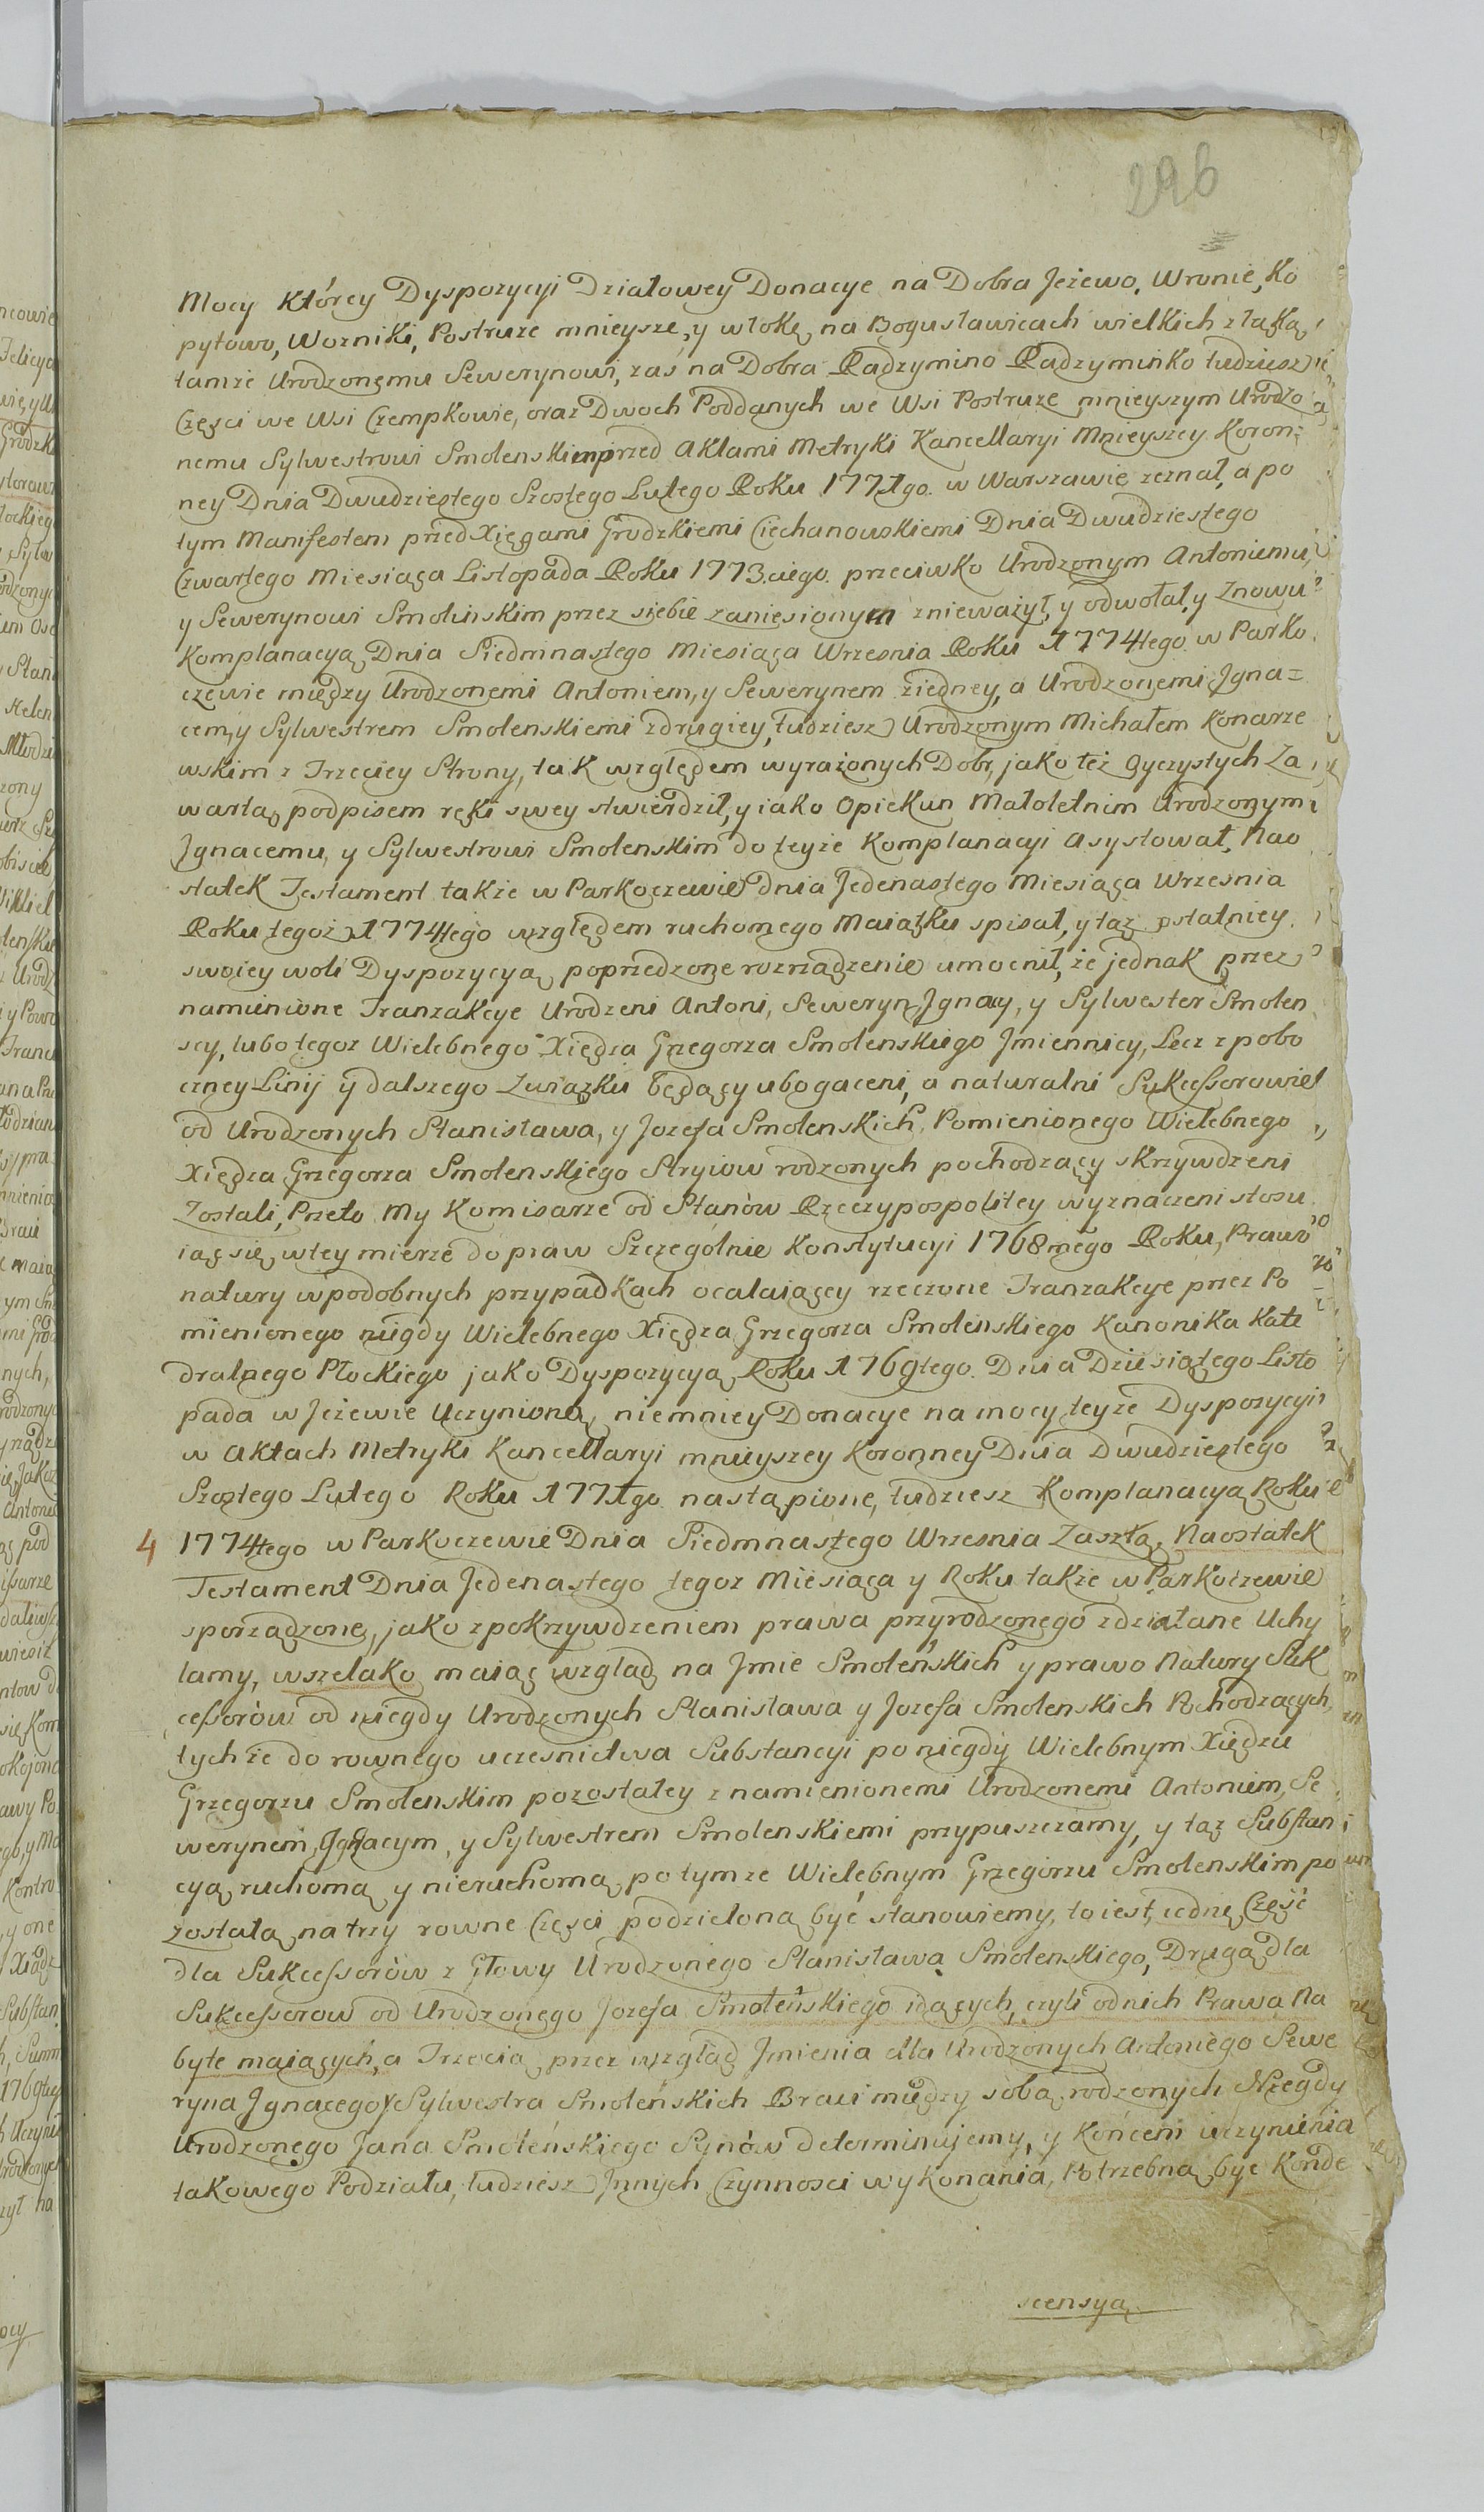 296
Mocy Którey Dyspozycyi Działowey Donacye na Dobra Jeżewo, Wronie, Ko
pytowo, Wozniki, Postruże mnieysze, y włokę na Bogusławicach wielkich z łąką
tamże Urodzonemu Sewerynowi, zaś na Dobra Radzymino Radzyminko tudziesz
Części we Wsi Czempkowie, oraz Dwoch Poddanych we Wsi Postruże mnieyszym Urodzo
nemu Sylwestrowi Smolenskim przed Aktami Metryki Kancellaryi Mnieyszey Koron=
ney Dnia Dwudziestego Szostego Lutego Roku 1771go. w Warszawie zeznał, a po
tym Manifestem przed Xięgami Grodzkiemi Ciechanowskiemi Dnia Dwudziestego
Czwartego Miesiąca Listopada Roku 1773.ciego. przeciwko Urodzonym Antoniemu,
y Sewerynowi Smolinskim przez siebie zaniesionym znieważył, y odwołał, y Znowu
Komplanacyą Dnia Siedmnastego Miesiąca Wrzesnia Roku 1774tego. w Parko
czewie między Urodzonemi Antoniem, y Sewerynem ziedney, a Urodzonemi Igna=
cem, y Sylwestrem Smolenskiemi zdrugiey, tudziesz Urodzonym Michałem Konarze
wskim z Trzeciey Strony, tak względem wyrażonych Dobr, jako też Oyczystych Za
wartą podpisem ręki swey stwierdził, y iako Opiekun Małoletnim Urodzonym
Ignacemu, y Sylwestrowi Smolenskim do teyże Komplanacyi Asystował, Nao
statek Testament także w Parkoczewie dnia Jedenastego Miesiąca Wrzesnia
Roku tegoż 1774tego względem ruchomego Maiątku spisał, y tąż ostatniey
swoiey woli Dyspozycyą poprzedzone rozrządzenie umocnił, że jednak przez
namienione Tranzakcye Urodzeni Antoni, Seweryn, Ignacy, y Sylwester Smolen
scy, lubo tegoz Wielebnego Xiędza Grzegorza Smolenskiego Jmiennicy, Lecz z pobo
czney Linij y dalszego Związku będący ubogaceni, a naturalni Sukcessorowie
od Urodzonych Stanisława, y Jozefa Smolenskich, Pomienionego Wielebnego
Xiędza Grzegorza Smolenskiego Stryiow rodzonych pochodzący skrzywdzeni
Zostali, Przeto My Komisarze od Stanów Rzeczypospolitey wyznaczeni stosu
iąc się wtey mierze do praw Szczególnie Konstytucyi 1768mego Roku, Prawo
natury wpodobnych przypadkach ocalaiącey rzeczone Tranzakcye przez Po
mienionego niigdy Wielebnego Xiędza Grzegorza Smolenskiego Kanonika Kate
dralnego Płockiego jako Dyspozycyą Roku 1769tego. Dnia Dziesiątego Listo
pada w Jeżewie Uczynioną, niemniey Donacye na mocy teyże Dyspozycyi
w Aktach Metryki Kancellaryi mnieyszey Koronney Dnia Dwudziestego
Szostego Lutego Roku 1771go. nastąpione, tudziesz Komplanacyą Roku
4 1774tego w Parkoczewie Dnia Siedmnastego Wrzesnia Zaszłą, Naostatek
Testament Dnia Jedenastego tegoz Miesiąca y Roku także w Parkoczewie
sporządzone, jako z pokrzywdzeniem prawa przyrodzonego zdziałane Uchy
lamy, wszelako maiąc wzgląd na Jmie Smoleńskich y prawo Natury Suk
cessorów od niegdy Urodzonych Stanisława y Jozefa Smolenskich Pochodzących,
tychże do rownego uczesnictwa Substancyi po niegdy Wielebnym Xiędzu
Grzegorzu Smolenskim pozostałey z namienionemi Urodzonemi Antoniem, Se
werynem, Ignacym, y Sylwestrem Smolenskiemi przypuszczamy, y tąż Substan
cyą ruchomą y nieruchomą po tymze Wielebnym Grzegorzu Smolenskim po
zostałą na trzy rowne Części podzieloną być stanowiemy, to iest, iednę Część
dla Sukcessorów z Głowy Urodzonego Stanisława Smolenskiego, Drugą dla
Sukcessorow od Urodzonego Jozefa Smoleńskiego idących, czyli odnich Prawa Na
byte maiących, a Trzecią przez wzgląd Jmienia dla Urodzonych Antoniego Sewe
ryna Ignacego y Sylwestra Smoleńskich Braci między sobą rodzonych Niegdy
Urodzonego Jana Smoleńskiego Synów determinujemy, y Końcem uczynienia
takowego Podziału, tudziesz Jnnych Czynnosci wykonania, Potrzebną być Konde
scensyą